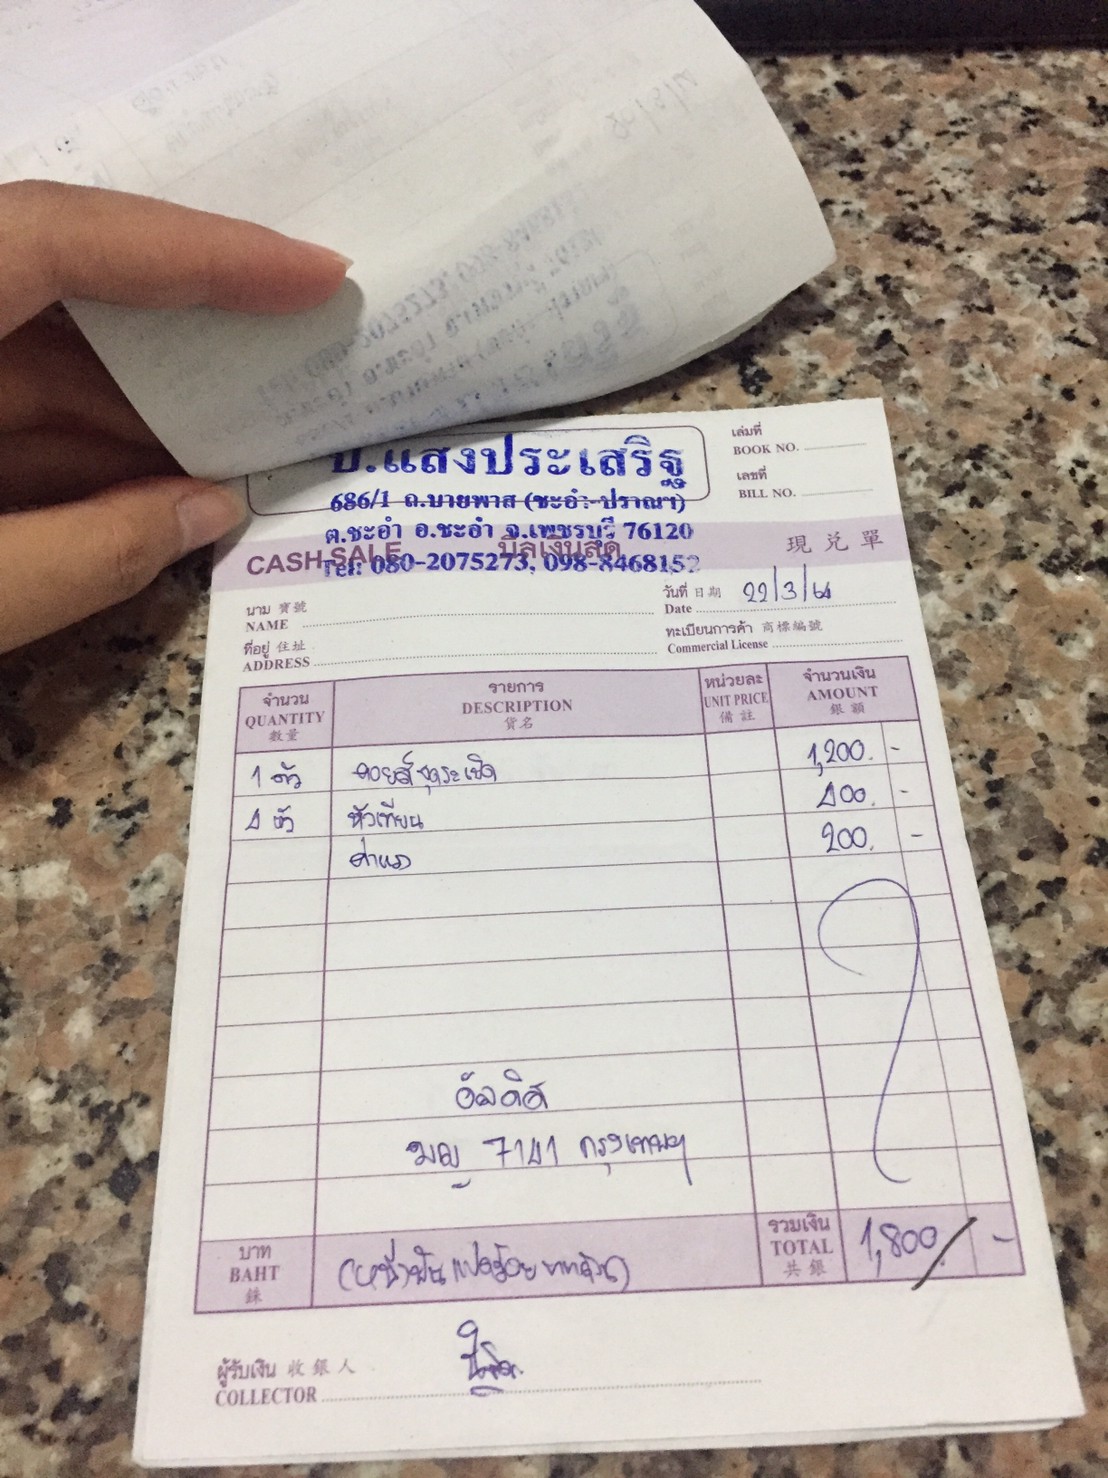 ป.แสงประเสริฐ
686/1 ถ.บายพาส (ชะอำ-ปราณฯ)
ต.ชะอำ อ.ชะอำ จ.เพชรบุรี 76120
Tel: 080-2075273, 098-8468152
เล่มที่
BOOK NO.
เลขที่
BILL NO.
CASH SALE บิลเงินสด 現兌單
นาม 寶號
NAME
วันที่ 日期 22/3/64
Date
ที่อยู่ 住址
ADDRESS
ทะเบียนการค้า 商標編號
Commercial License
จำนวน รายการ หน่วยละ จำนวนเงิน
QUANTITY DESCRIPTION UNIT PRICE AMOUNT
數量 貨名 備註 銀額
1 ตัว คอยส์จุดระเบิด 1,200.-
4 หัว หัวเทียน 400.-
ค่าแรง 200.-
อัลติส
7141 กรุงเทพฯ
บาท (หนึ่งพันแปดร้อยบาทถ้วน) รวมเงิน 1,800 -
BAHT TOTAL
銖 共銀
ผู้รับเงิน 收銀人
COLLECTOR